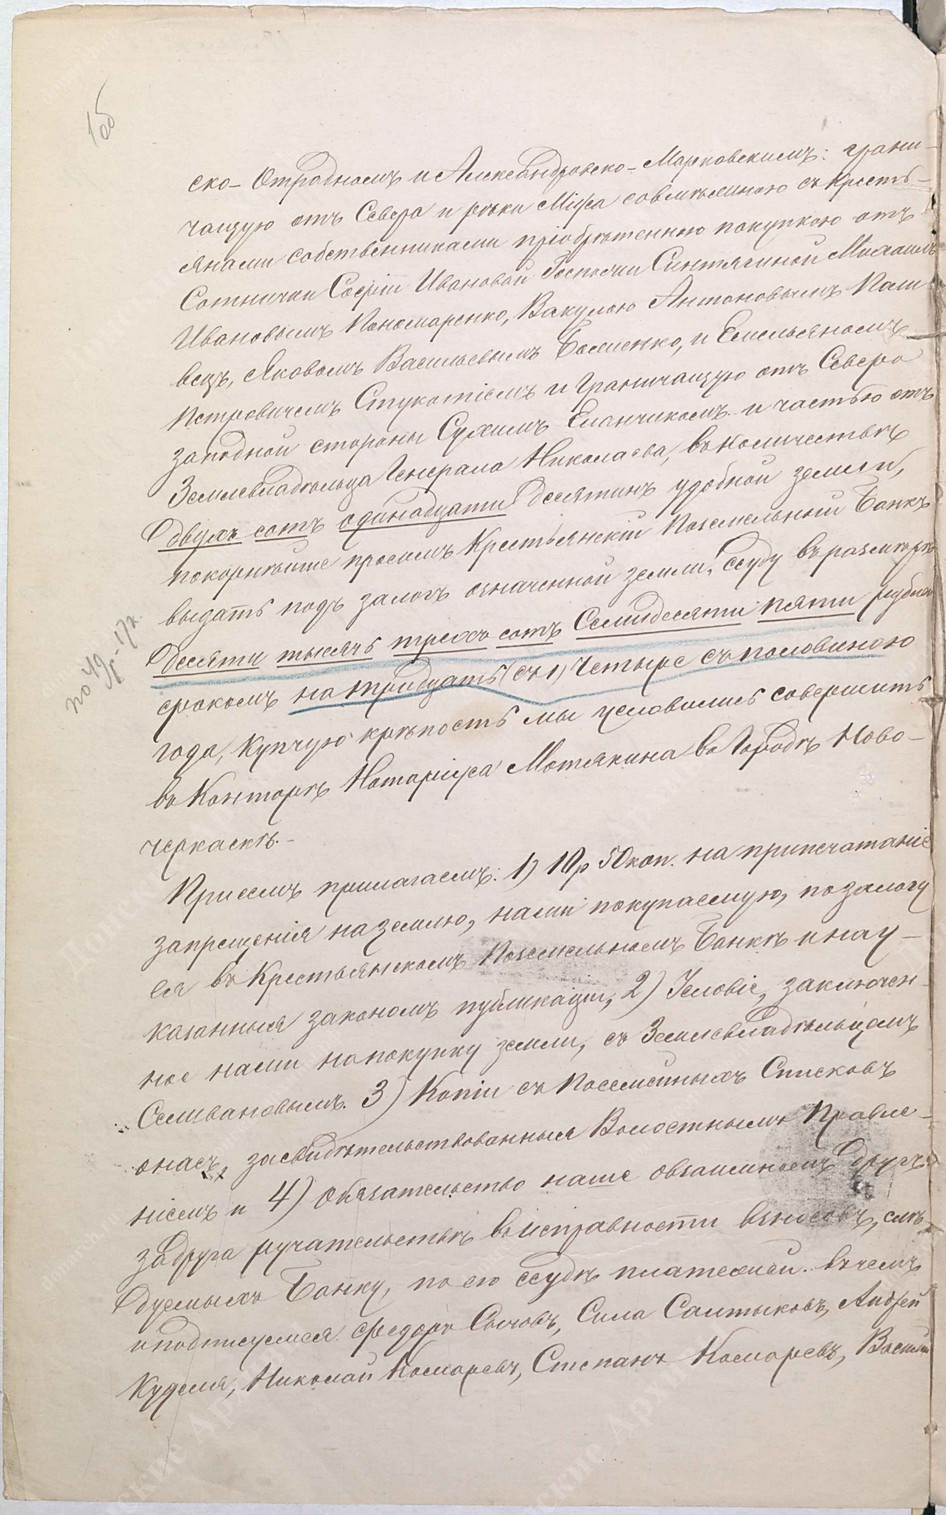 1об
ско-Отрадномъ и Александровско-Марковскимъ: грани-
чащую отъ Севера и реки Міуса совмѣстною съ кресть-
янами собственниками пріобрѣтенною покупкою отъ
Сотнички Софіи Ивановой Госпожи Синтягиной Михаилъ
Ивановымъ Пономаренко, Вакулою Антоновымъ Пали-
вецъ, Яковомъ Васильевымъ Бошенко, и Емельяномъ
Петровичемъ Стукотіемъ и граничащую отъ Северо
западной стороны Сухимъ Еланчикомъ и частью отъ
Землевладѣльца Генерала Николаева, въ количествѣ
двухъ сотъ одинадцати десятинъ удобной земли,
покорнѣйше просимъ Крестьянскій Поземельный Банкъ
выдать подъ залогъ означенной земли, ссуду въ размѣрѣ
Десяти тысячъ трехъ сотъ Семидесяти пяти рублей
срокомъ на тридцать (съ 1) Четыре съ половиною
по 49 р.-17к.
года, Купчую крѣпость мы условились совершить
въ Конторѣ Нотаріуса Мотякина въ Городѣ Ново-
черкаскѣ.-
Присемъ прилагаемъ: 1) 10р 50коп. на припечатаніе
запрещенія на землю, нами покупаемую, по залогу
ея въ Крестьянскомъ Поземельномъ Банкѣ и на у-
казанныя закономъ публикаціи, 2) Условіе, заключен-
ное нами на покупку земли, съ Землевладѣльцемъ
Селивановымъ. 3) Копіи съ Посемейныхъ Списковъ
о насъ, засвидѣтельствованныя Волостнымъ Правле-
ніемъ и 4) обязательство наше овзаимномъ другъ
за друга ручательствѣ въ исправности взносовъ, слѣ-
дуемыхъ Банку, по его ссудѣ платежей. въ чемъ
и подписуемся Федоръ Сычовъ, Сила Салтыковъ, Андрей
Куделя, Николай Комаревъ, Степанъ Комаревъ, Василій